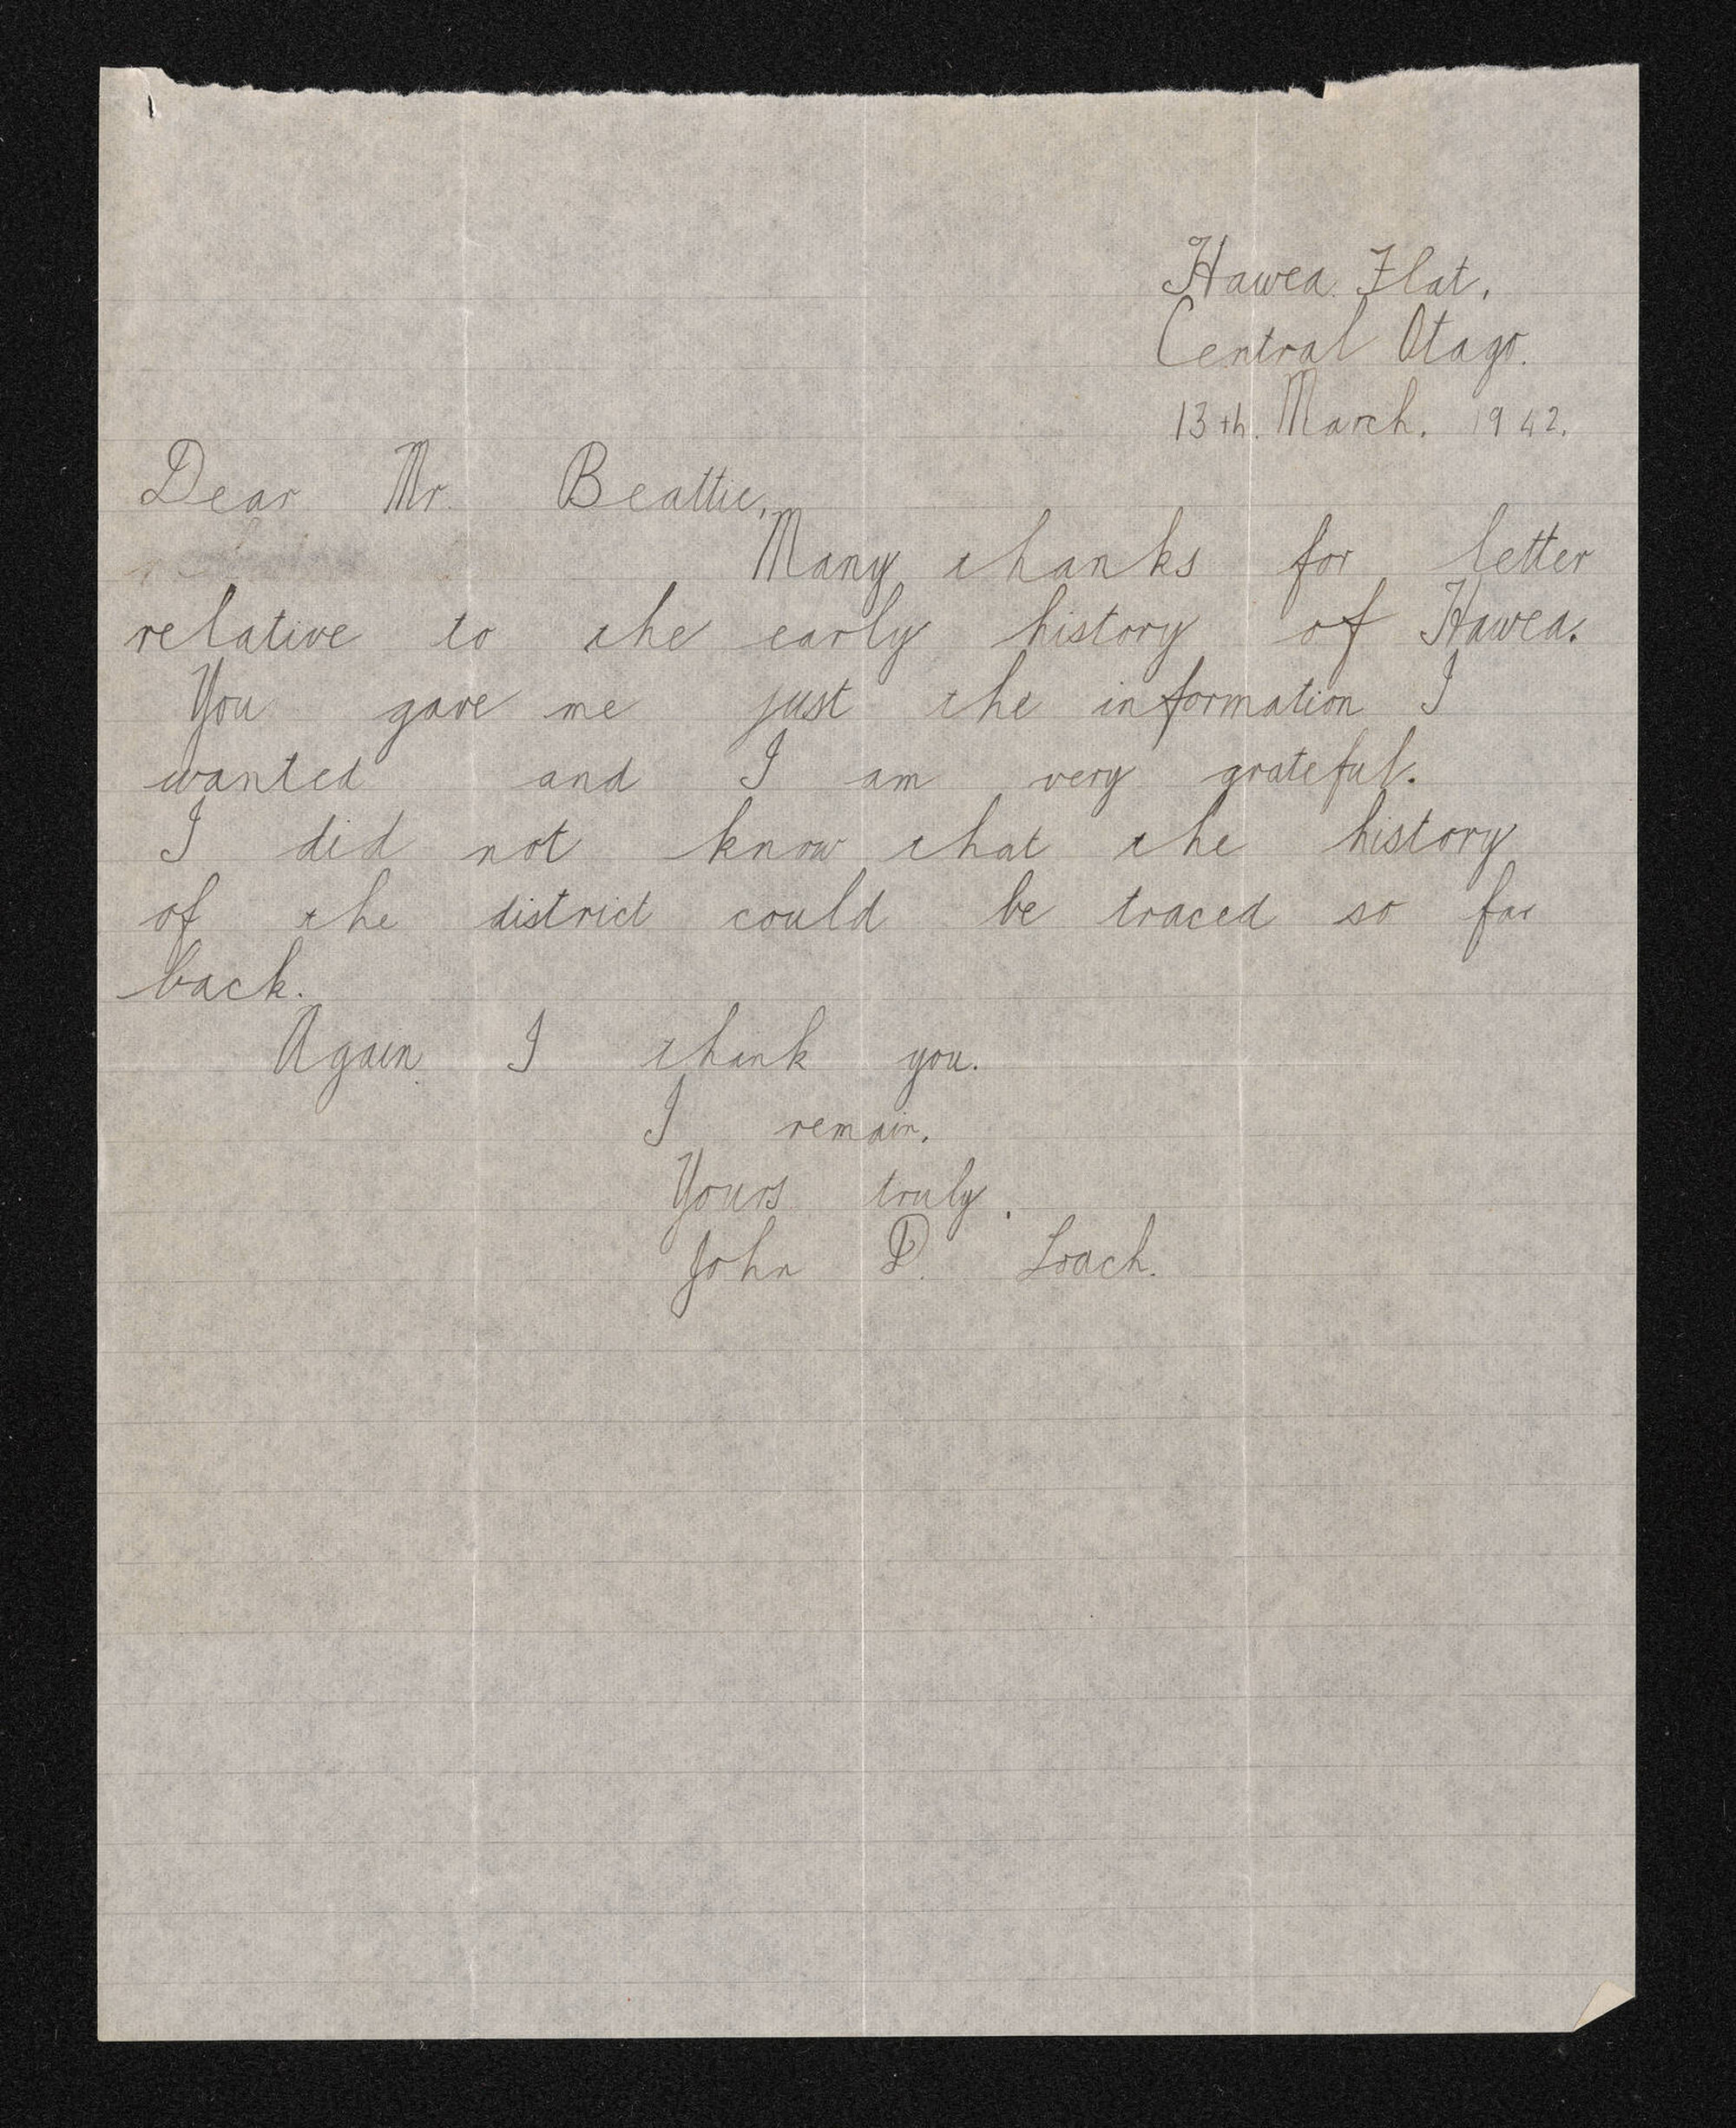 Hawea Flat.
Central Otago.
13th. March. 1942.
Dear Mr. Beattie,
Many thanks for letter
relative to the early history of Hawea.
You gave me just the information I
wanted and I am very grateful.
I did not know that the history
of the district could be traced so far
back.
Again I thank you.
I remain.
Yours truly.
John D. Loach.